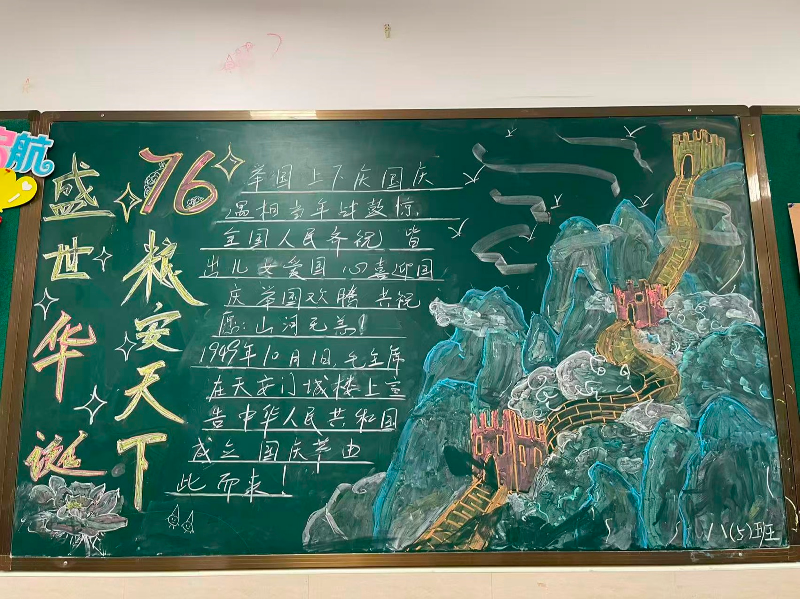 航
盛世华诞
76
粮安天下
举国上下庆国庆
温相当年钟鼓惊
全国人民齐祝 皆
出儿女爱国 心喜迎国
庆举国欢腾 共祝
愿:山河无恙!
1949年10月1日 毛主席
在天安门城楼上宣
告中华人民共和国
成立 国庆节由
此而来!
八(5)班